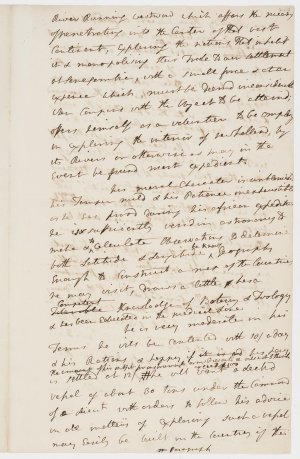 Rivers Running westward which offers the means
of penetrating into the Center of that vast
Continent, Exploring the nations that inhabit
it & monopolizing their Trade to our settlement
at with a small force & at an
expence which must be deem'd inconsiderable
when Compar'd with the object to be attain'd,
offers himself as a volunteer to be employ'd
in exploring the interior of by
its Rivers or otherwise as may in the
Event be found most expedient.
his moral Character is unblemish'd
his Temper mild & his Patience inexhaustible
as he has prov'd during his african expedition
he is sufficiently vers'd in astronomy to
make & to Calculate observations to determine
both Latitude & Longitude, he knows Geography
Enough to Construct a map of the Countries
he may visit, draws a little & has a
Competent
Tolerable Knowledge of Botany & Zoology
& has been Educated in the medical Line.
he is very moderate in his
Terms he will be contented with 10/ a day
& his Rations & happy if it is
is settled at 12/ he will want a deckd
vessel of about 30 tons under the Command
of a Lieut. with orders to follow his advice
in all matters of Exploring such a vessel
may Easily be built in the Countries if the